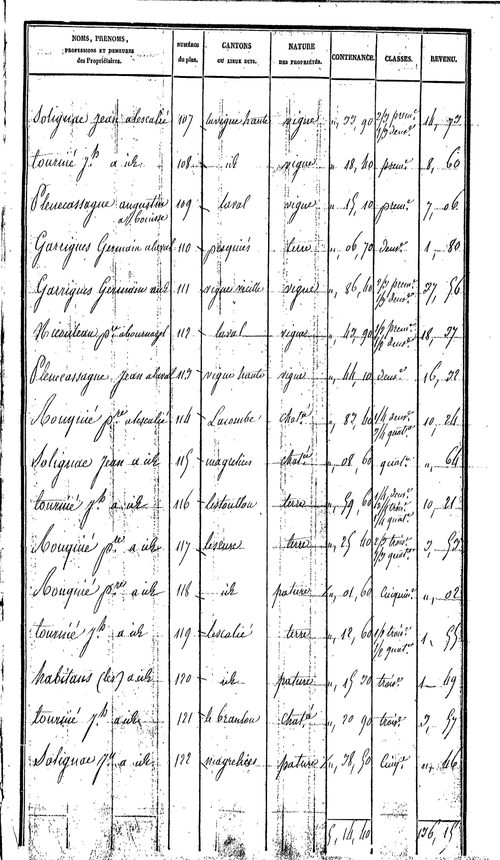 NOMS, PRÉNOMS, PROFESSIONS ET DEMEURES des Propriétaires. NUMÉROS du plan. CANTONS OU LIEUX DITS. NATURE DES PROPRIÉTÉS. CONTENANCE. CLASSES. REVENU.
Solignac Jean alescalié 107 lavigne haute vigne ", 33, 90 2/3 prem.e 1/3 deux.e 14, 73
tournié j.h a id. 108 id vigne ", 18, 40 prem.e 8, 60
Plenecassagne augustin 109 laval vigne ", 15, 10 prem.e 7, 06
Garrigues Germain alaval 110 pesquiés terre ", 06, 70 deux.e 1, 80
Garrigues Germain aud 111 vigne vieille vigne ", 86, 40 2/3 prem.e 1/3 deux.e 37, 56
p.re abournazel 112 laval vigne ", 43, 90 1/3 prem.e 2/3 deux.e 18, 37
Plenecassagne Jean alaval 113 vigne haute vigne ", 44, 10 deux.e 16, 32
Mouquié p.re alescalié 114 Lacombe chat.e ", 83, 40 1/4 deux.e 3/4 quat.e 10, 24
Solignac Jean a id 115 magrelies chat.e ", 08, 60 quat.e ", 64
tournié j.h a id. 116 lestoutlou terre ", 59, 60 1/4 deux.e 2/4 trois.e 1/4 quat.e 10, 21
Mouquié p.re a id 117 terre ", 25, 40 2/3 quat.e 3, 53
Mouquié p.re a id 118 id pature ", 01, 60 Cinquiè.e ", 02
tournié j.h a id 119 lescalié terre ", 12, 60 1/2 trois.e 1/2 quat.e 1, 55
habitans (les) a id 120 id pature ", 15, 30 trois.e 1, 49
tournié j.h a id. 121 chat.e ", 20, 90 trois.e 3, 57
Solignac j.n a id 122 magrelies pature ", 38, 50 Cinq.e ", 46
5, 14, 40 136, 15